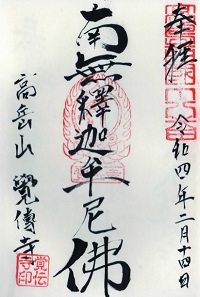 奉拝
令和四年二月十四日
南無釋迦牟尼佛
高岳山 覺傳寺
覚伝
寺印